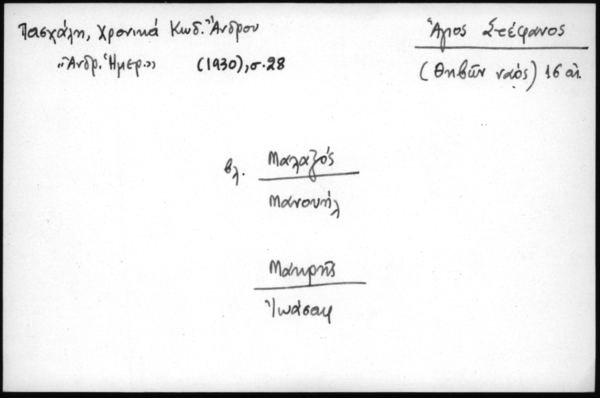 Πασχάλη, Χρονικά Κωδ. Ἄνδρου
«Ἀνδρ. Ἡμερ.» (1930), σ. 28
Ἅγιος Στέφανος
(Θηβῶν ναός) 16 αἰ.
βλ. Μαλαξός
Μανουήλ
Μακρῆς
Ἰωάσαφ